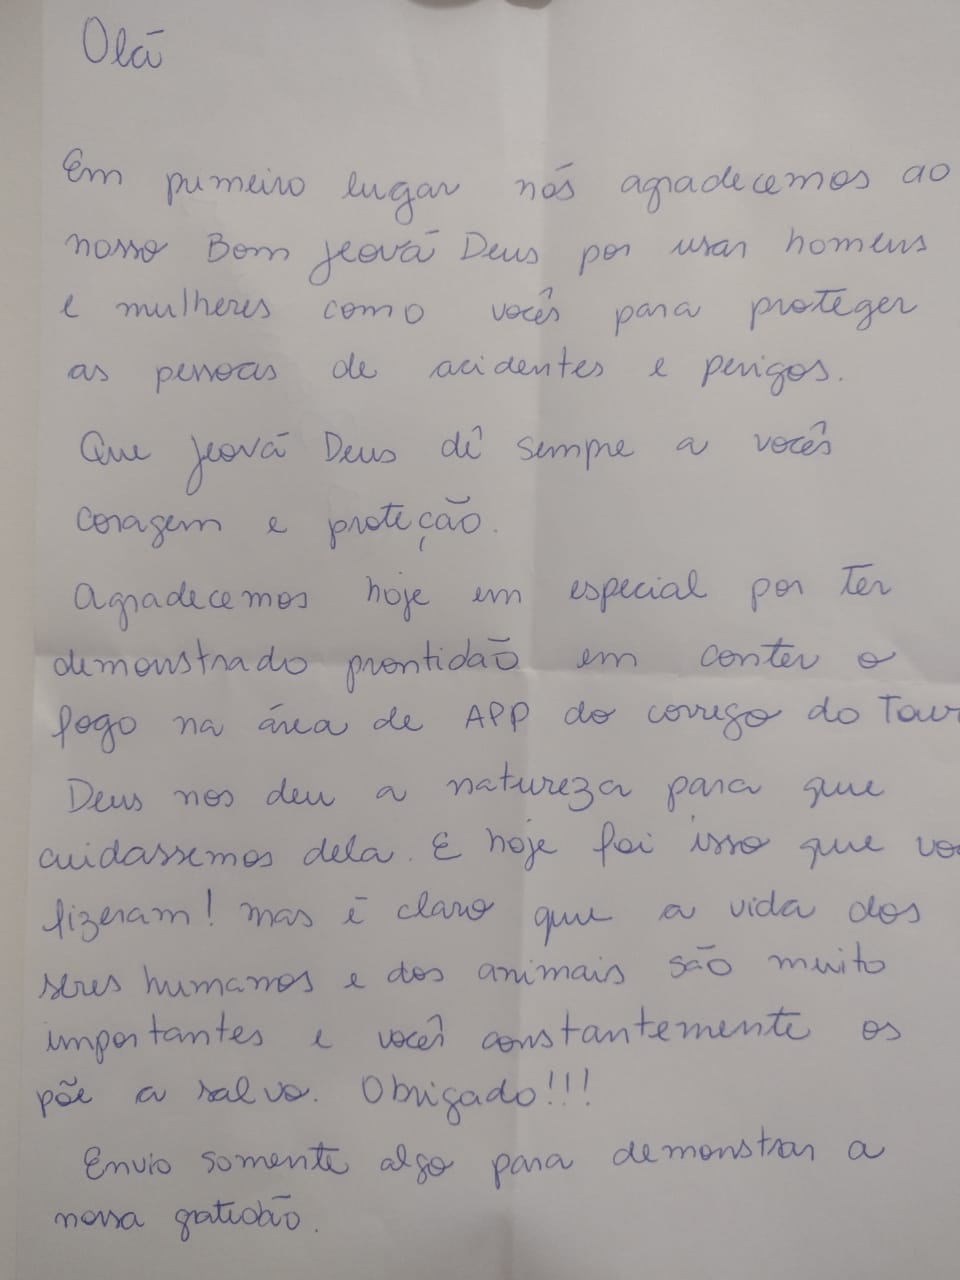 Olá
Em primeiro lugar nós agradecemos ao
nosso Bom Jeová Deus por usar homens
e mulheres como vocês para proteger
as pessoas de acidentes e perigos.
Que Jeová Deus dê sempre a vocês
coragem e proteção.
Agradecemos hoje em especial por ter
demonstrado prontidão em conter o
fogo na área de APP do corrego do
Deus nos deu a natureza para que
cuidassemos dela. E hoje foi isso que
fizeram! Mas é claro que a vida dos
seres humanos e dos animais são muito
importantes e vocês constantemente os
põe a salvo. Obrigado!!!
Envio somente algo para demonstrar a
nossa gratidão.